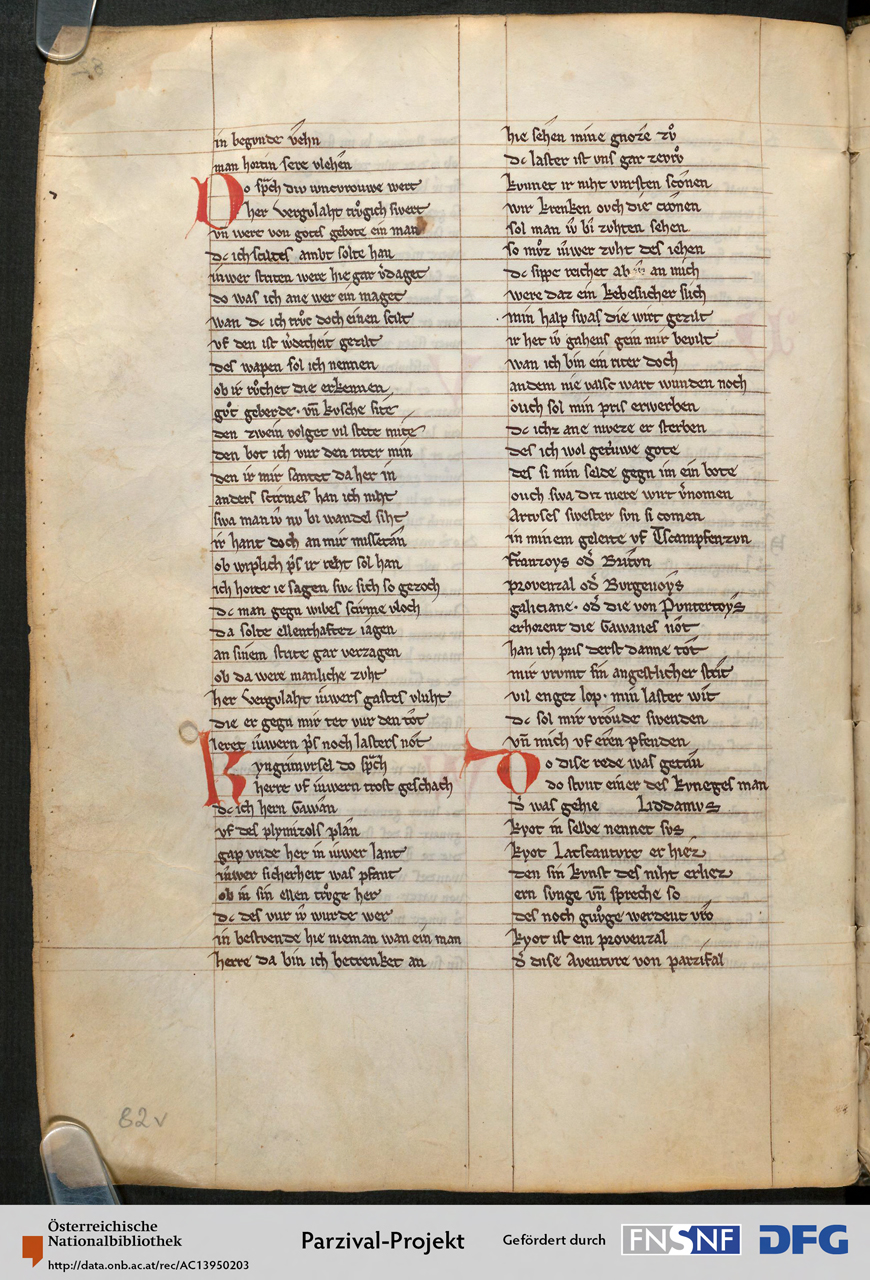 in begvnde vlehn
man hortin sere vlehen
Do sp̄ch div vncvrouwe wert
her Vergvlaht trv̊gich swert
vn̄ were von gotes gebote ein man
dc ich sciltes ambt solte han
iuwer striten were hie gar v̓daget
do was ich ane wer ein maget
wan dc ich trv̊c doch einen scilt
vf den ist w̓decheit gezilt
des wapen sol ich nennen
ob ir rv̊chet die erkennen
gv̊t geberde · vn̄ kvsche site
den zwein volget vil stete mite
den bot ich vur den riter min
den ir mir santet da her in
anders scirmes han ich niht
swa man iv̂ nv bi wandel siht
ir hant doch an mir missetan
ob wiplich p̓s ir reht sol han
ich horte ie sagen swc sich so gezoch
dc man gegn wibes scirme vloch
da solte ellenthaftez iagen
an sinem strite gar verzagen
ob da were manliche zvht
her Vergvlaht iuwers gastes vluht
die er gegn mir tet vur den tot
leret iuwern p̓s noch lasters not
Kyngrimvrsel do sp̄ch
herre vf iuwern trost geschach
dc ich hern Gawan
vf des plymizols plan
gap vride her in iuwer lant
iuwer sicherheit was pfant
ob in sin ellen trv̊ge her
dc des vur iv̂ wurde wer
in bestvende hie nieman wan ein man
herre da bin ich betrenket an
hie sehen mine gnoze zv̊
dc laster ist vns gar zevrv̊
kvnnet ir niht vursten sconen
wir krenken ovch die cronen
sol man iv̂ bi zvhten sehen
so mv̊z iuwer zvht des iehen
dc sippe reichet ab iv̂ an mich
were daz ein kebeslicher slich
min halp swas die wirt gezilt
ir het iv̂ gahens gein mir bevilt
wan ich bin ein riter doch
andem nie valsc wart wunden noch
ouch sol min pris erwerben
dc ichz ane niweze er sterben
des ich wol getruwe gote
des si min selde gegn im ein bote
ouch swa diz mere wirt v̓nomen
Artvses swester svn si comen
in minem geleite vf Tscampfenzvn
Franzoys od̓ Britvn
provenzal od̓ Burgenoys
galiciane · od̓ die von Pvntertoys
erhorent die Gawanes not
han ich pris derst danne tot
mir vrvmt sin angestlicher strit
vil engez lop · min laster wit
dc sol mir vroude swenden
vn̄ mich vf eren pfenden
Do dise rede was getan
do stvnt einer des kvneges man
d̓ was gehie Liddamvs
kyot in selbe nennet svs
kyot Latscantvre er hiez
den sin kvnst des niht erliez
ern svnge vn̄ spreche so
des noch gnv̊ge werdent vro
kyot ist ein provenzal
d̓ dise Aventvre von parzifal
82v
Österreichische
Nationalbibliothek
http://data.onb.ac.at/rec/AC13950203
Parzival-Projekt
Gefördert durch
FNSNF
DFG